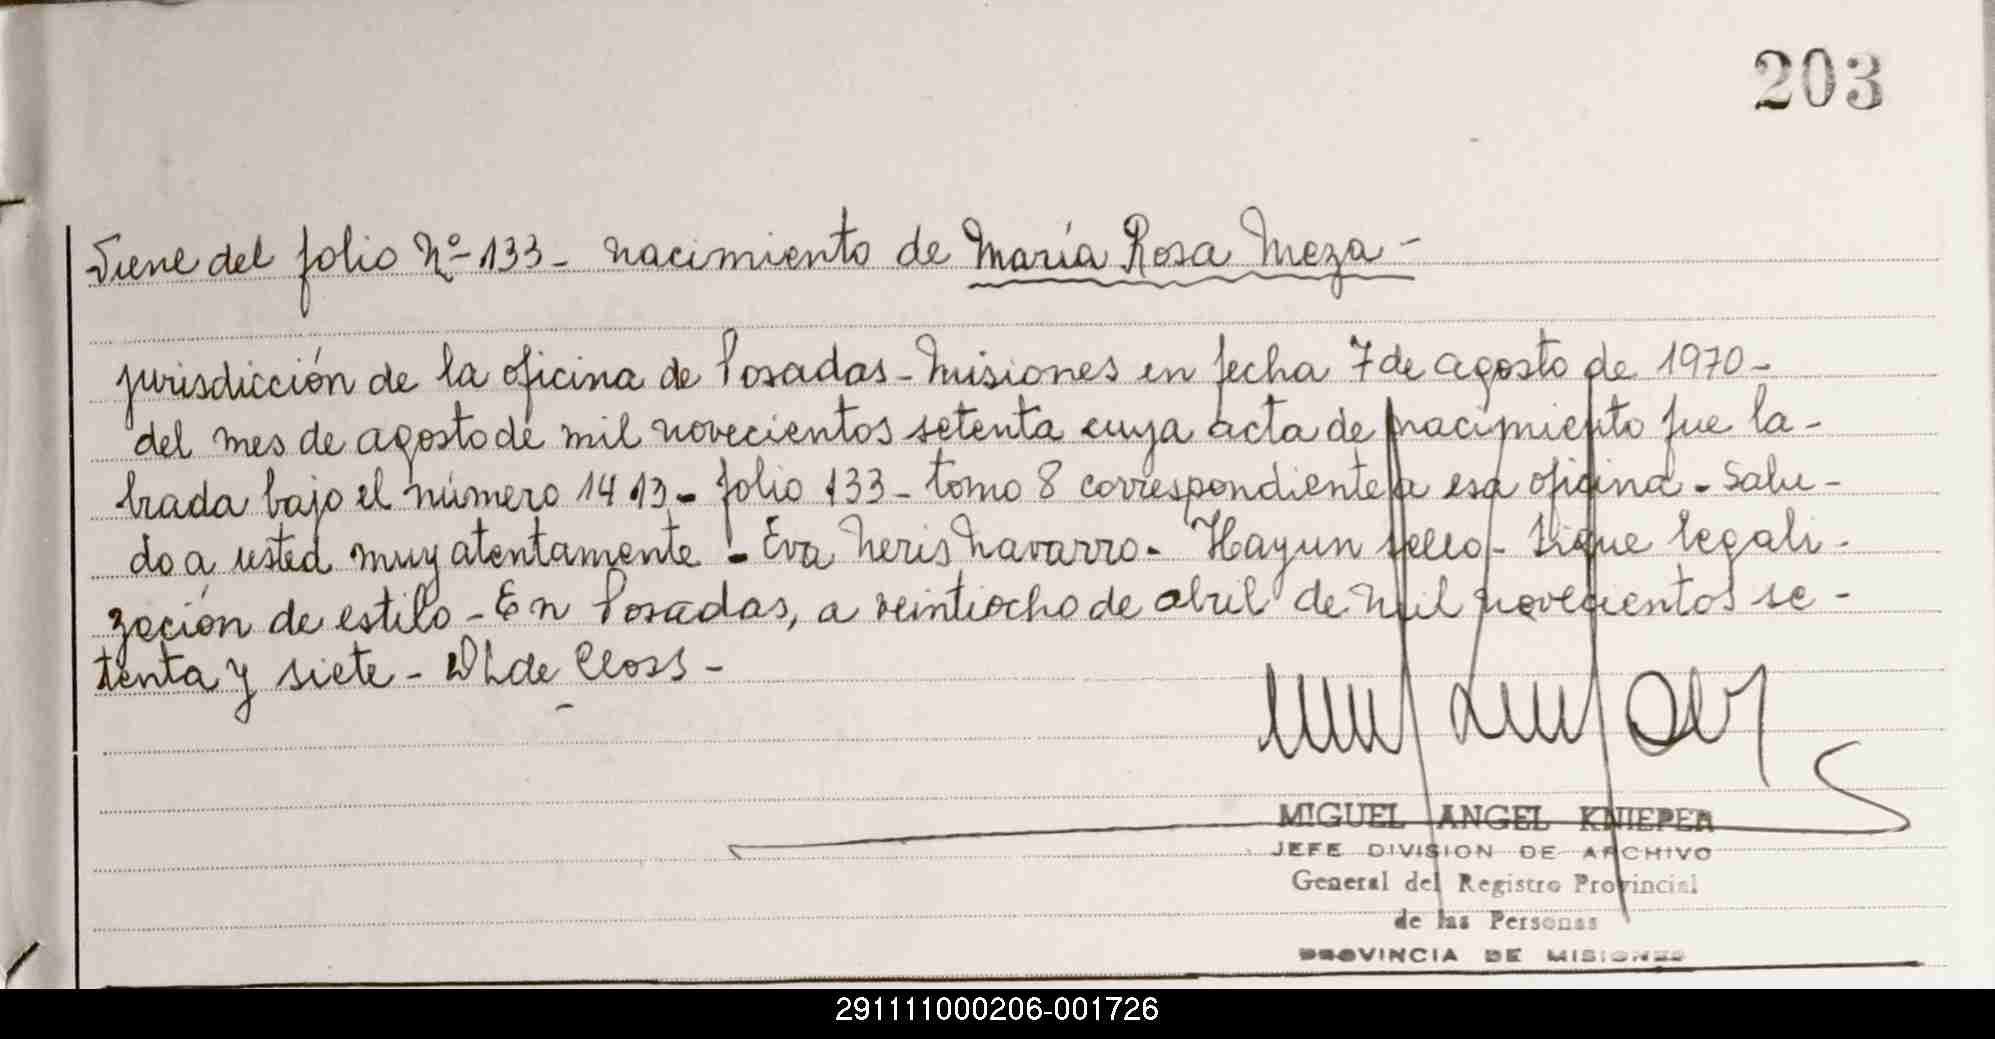 203
Viene del folio Nº-133- nacimiento de María Rosa Meza-
jurisdicción de la oficina de Posadas-Misiones en fecha 7 de agosto de 1970-
del mes de agosto de mil novecientos setenta cuya acta de nacimiento fue la-
brada bajo el número 1413- folio 133- tomo 8 correspondiente a esa oficina- Salu-
do a usted muy atentamente - Eva Neris Navarro- Hay un sello- Sigue legali-
zación de estilo- En Posadas, a veintiocho de abril de mil novecientos se-
tenta y siete- DL de Closs-
MIGUEL ANGEL KNIEPER
JEFE DIVISION DE ARCHIVO
General del Registro Provincial
de las Personas
PROVINCIA DE MISIONES
291111000206-001726